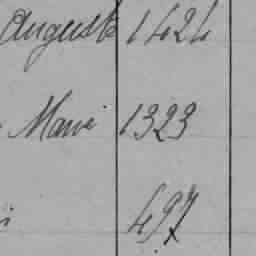 August 1424
Mari 1323
i 497